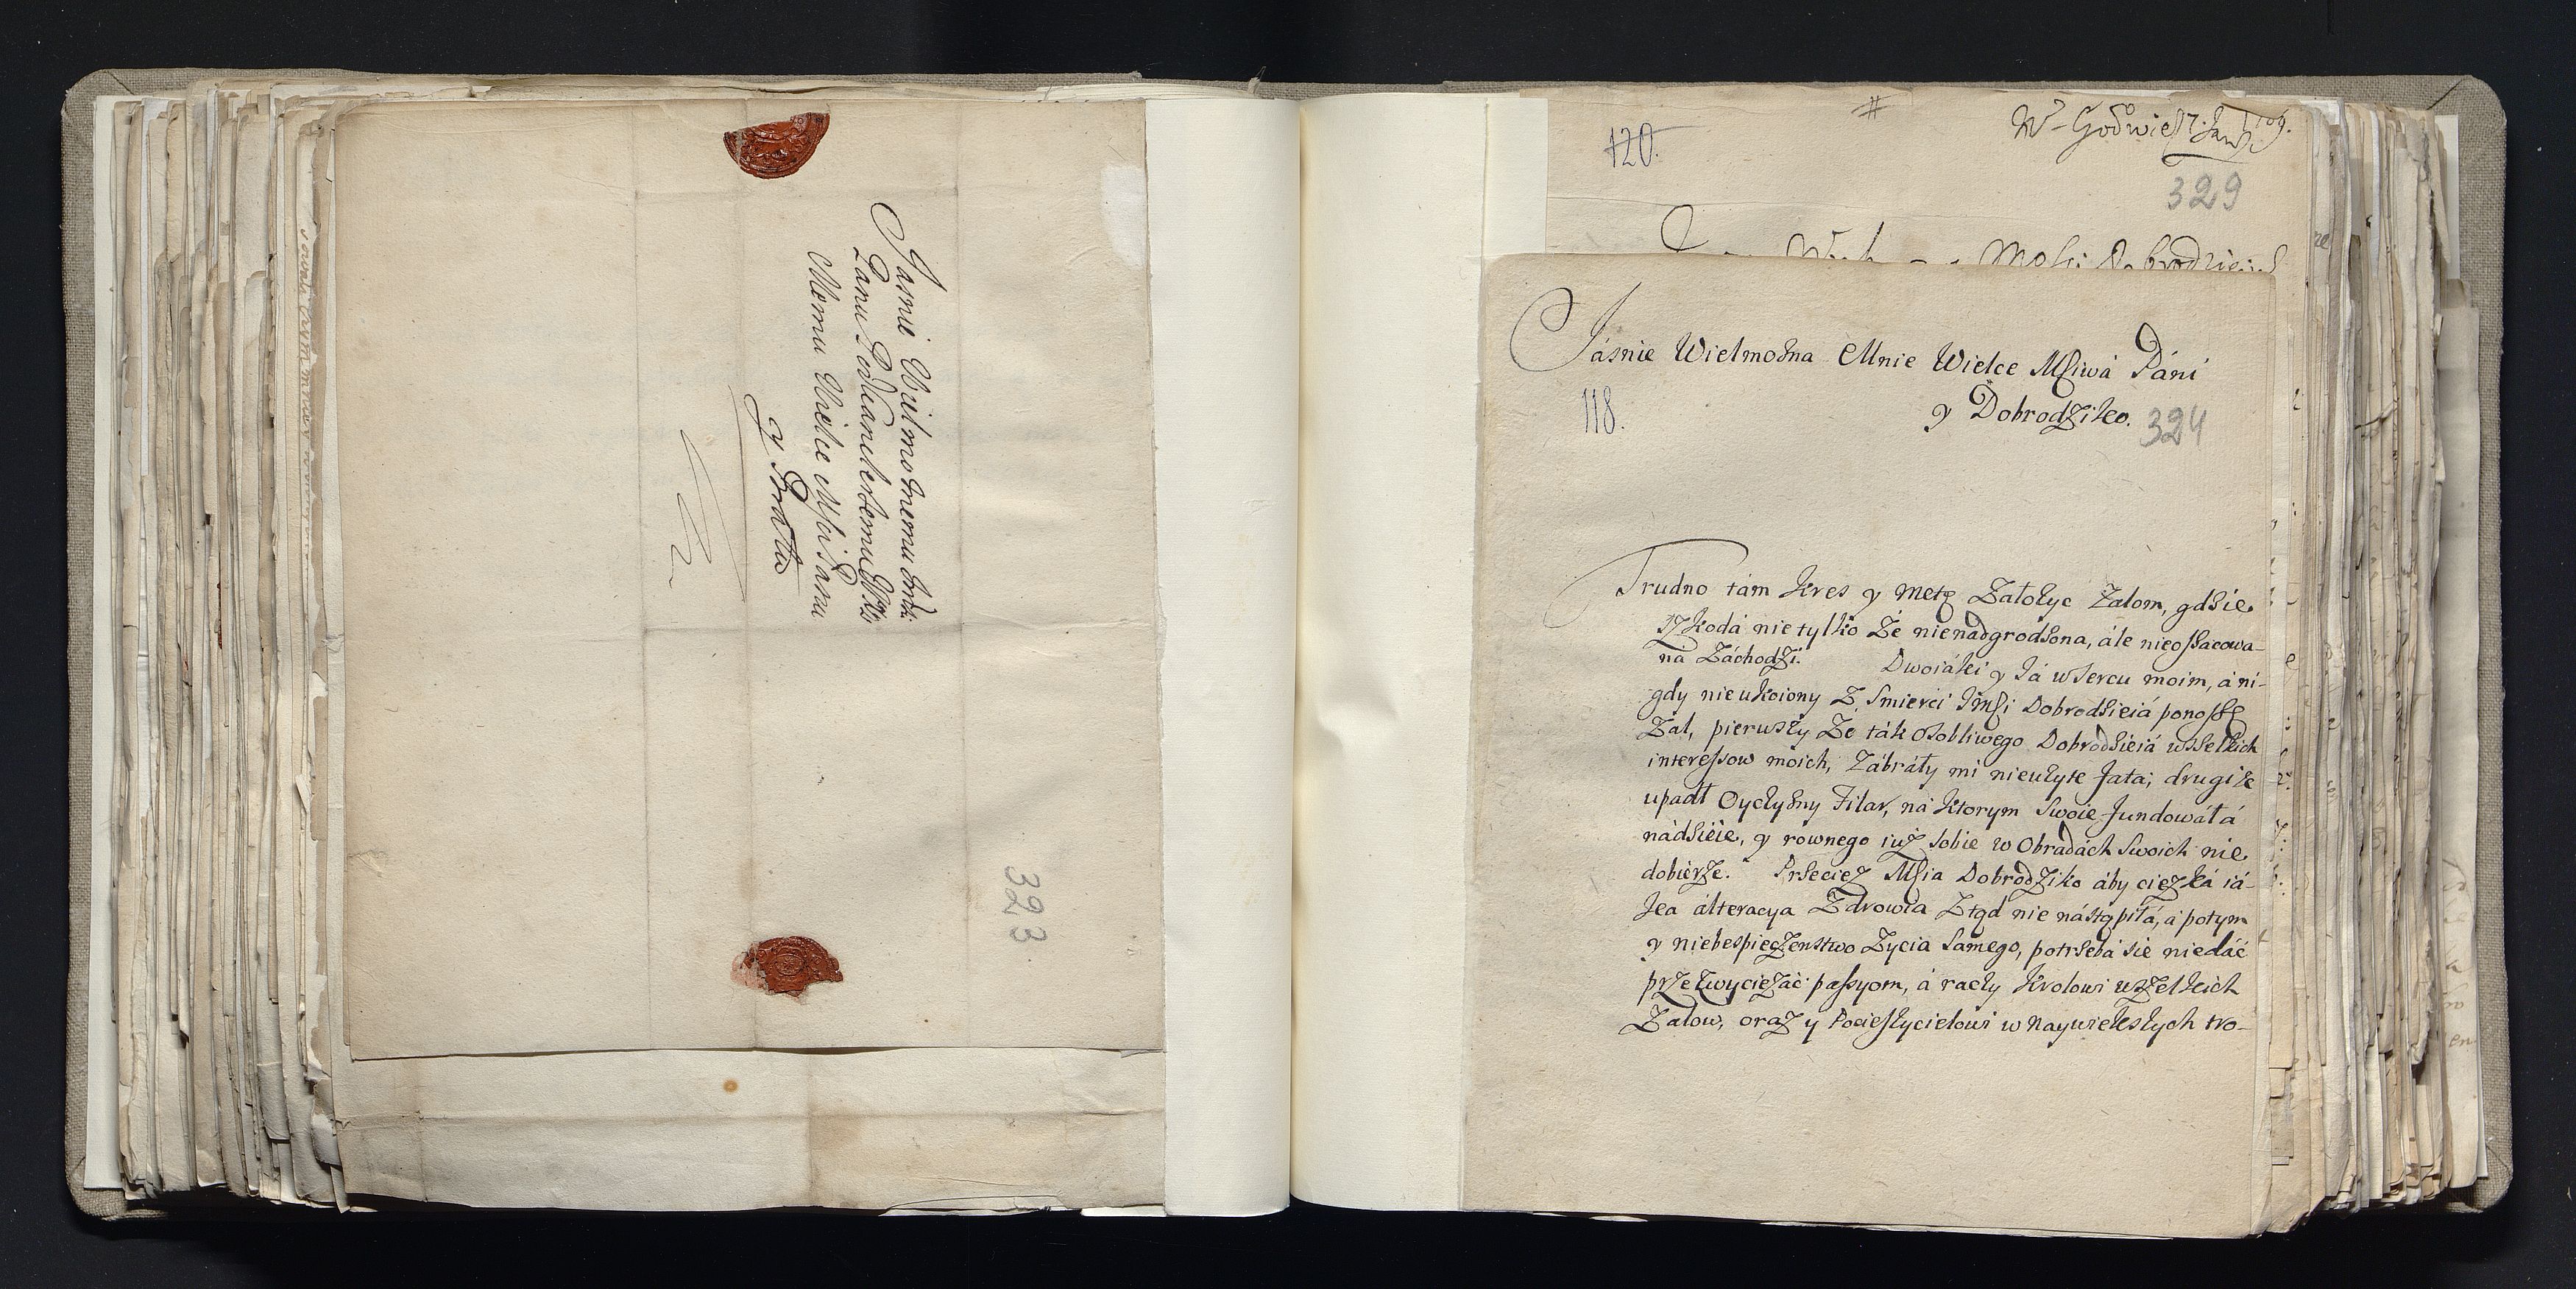 Jasnie Wielmożnemu Imći
Panu Podkanclerzemu WXL
Memu Wielce Mści Panu
y Bratu
323
120.
#
W-Godwie
329
Mości Dobrodzieiu
Jáśnie Wielmożna Mnie Wielce Mściwá Páni
y Dobrodziko.
118.
324
Trudno tám kres y metę Założyc Żalom, gdzie
szkodá nie tylko że nienadgrodzona, ále nieoszacowa-
ná Záchodzi. Dwoiáki y Já w sercu moim, á ni-
gdy nieukoiony Z, Smierci Jmści Dobrodzieiá ponoszę
Żal, pierwszy Że ták osobliwego Dobrodzieiá wszelkich
interessow moich, Zábráły mi nieużyte fata; drugi że
upadł Oyczyzny Filar, ná ktorym Swoie fundowáłá
nádzieie, y rownego iuż sobie w Obradách Swoich nie
dobierże. Przecież Mścia Dobrodziko áby cięzká iá-
ka álteracya Zdrowia Ztąd nie nástąpiłá, á potym
y niebespieczenstwo Życia samego, potrzebá sie niedáć
przezwyciężáć passyom, á raczy Krolowi wszelkich
Żalow, oraz y Pocieszycielowi w naywiekszych tro-